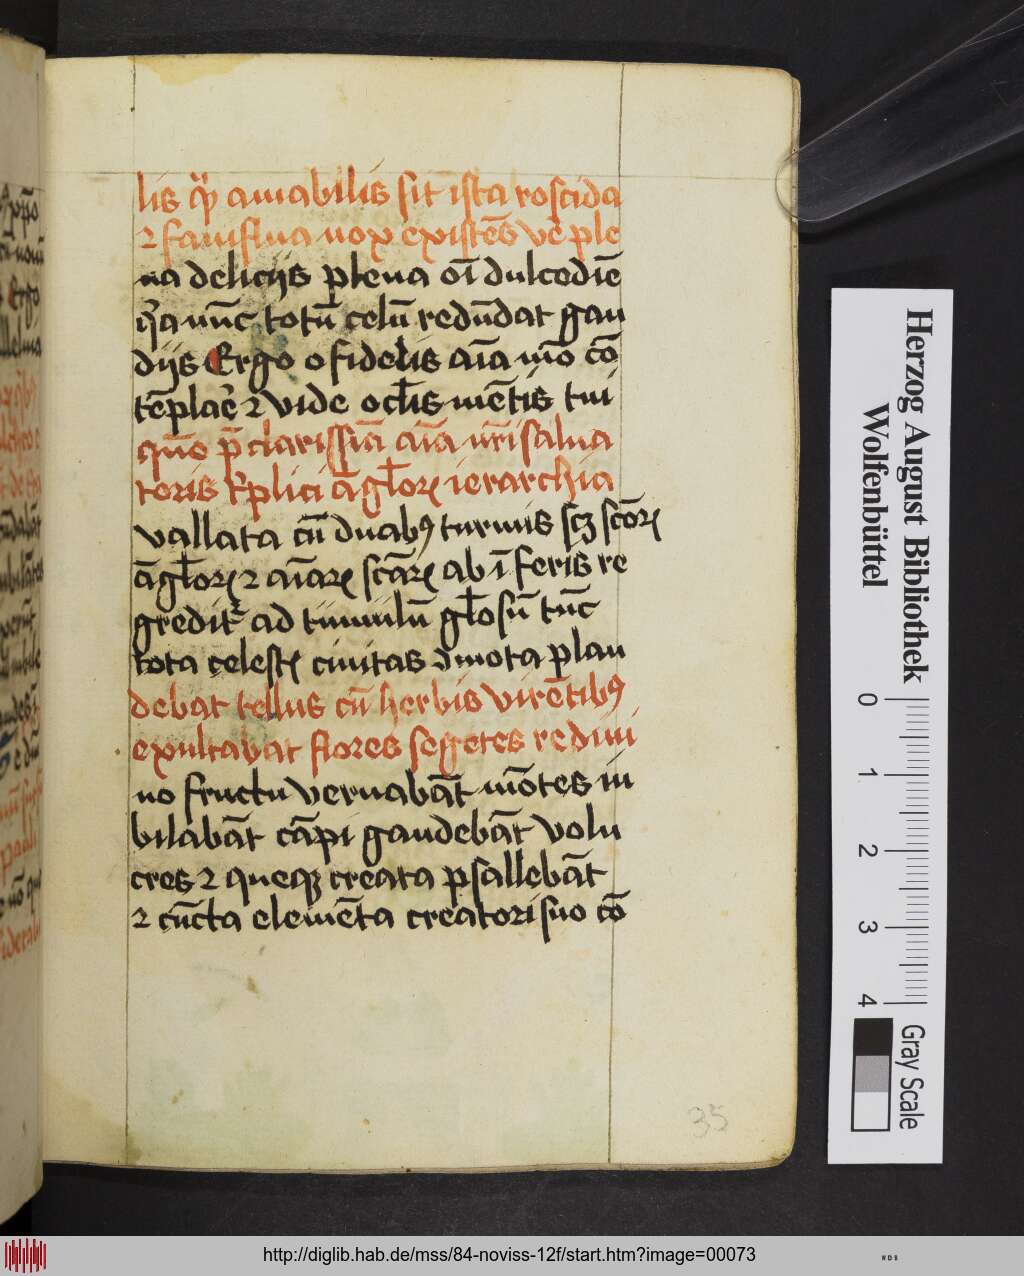 lis qͥ̈ꝑ amabilis sit ista roscida
⁊ faustiua nox existēs vͤē ple
na delicijs plena oī dulcodīe
qꝛ̄a nūc totū celū redūdat gau
dijs Ergo o fidelis aīa mō cō
tēplaᵉ̄ ⁊ vide oclīs mētis tui
quō p̄clarissīa aīa nr̄i salua
toris tͥplici āgl̄oꝝ ierarchia
vallata cū duabꝰ turmis scꝫ scōꝝ
āgl̄oꝝ ⁊ aīaꝝ scāꝝ ab īferis re
greditᷣ ad tumulū gl̄osū tūc
tota celestꝭ ciuitas ꝯmota plau
debat tellus cū herbis virētibꝰ
exultabat flores segetes rediui
uo fructu vernabāt mōtes iu
bilabāt cāpi gaudebāt volu
cres ⁊ queqꝫ creata psallebāt
⁊ cūcta elemēta creatori suo cō
35
Herzog August Bibliothek
Wolfenbüttel
0 1 2 3 4
Gray Scale
http://diglib.hab.de/mss/84-noviss-12f/start.htm?image=00073